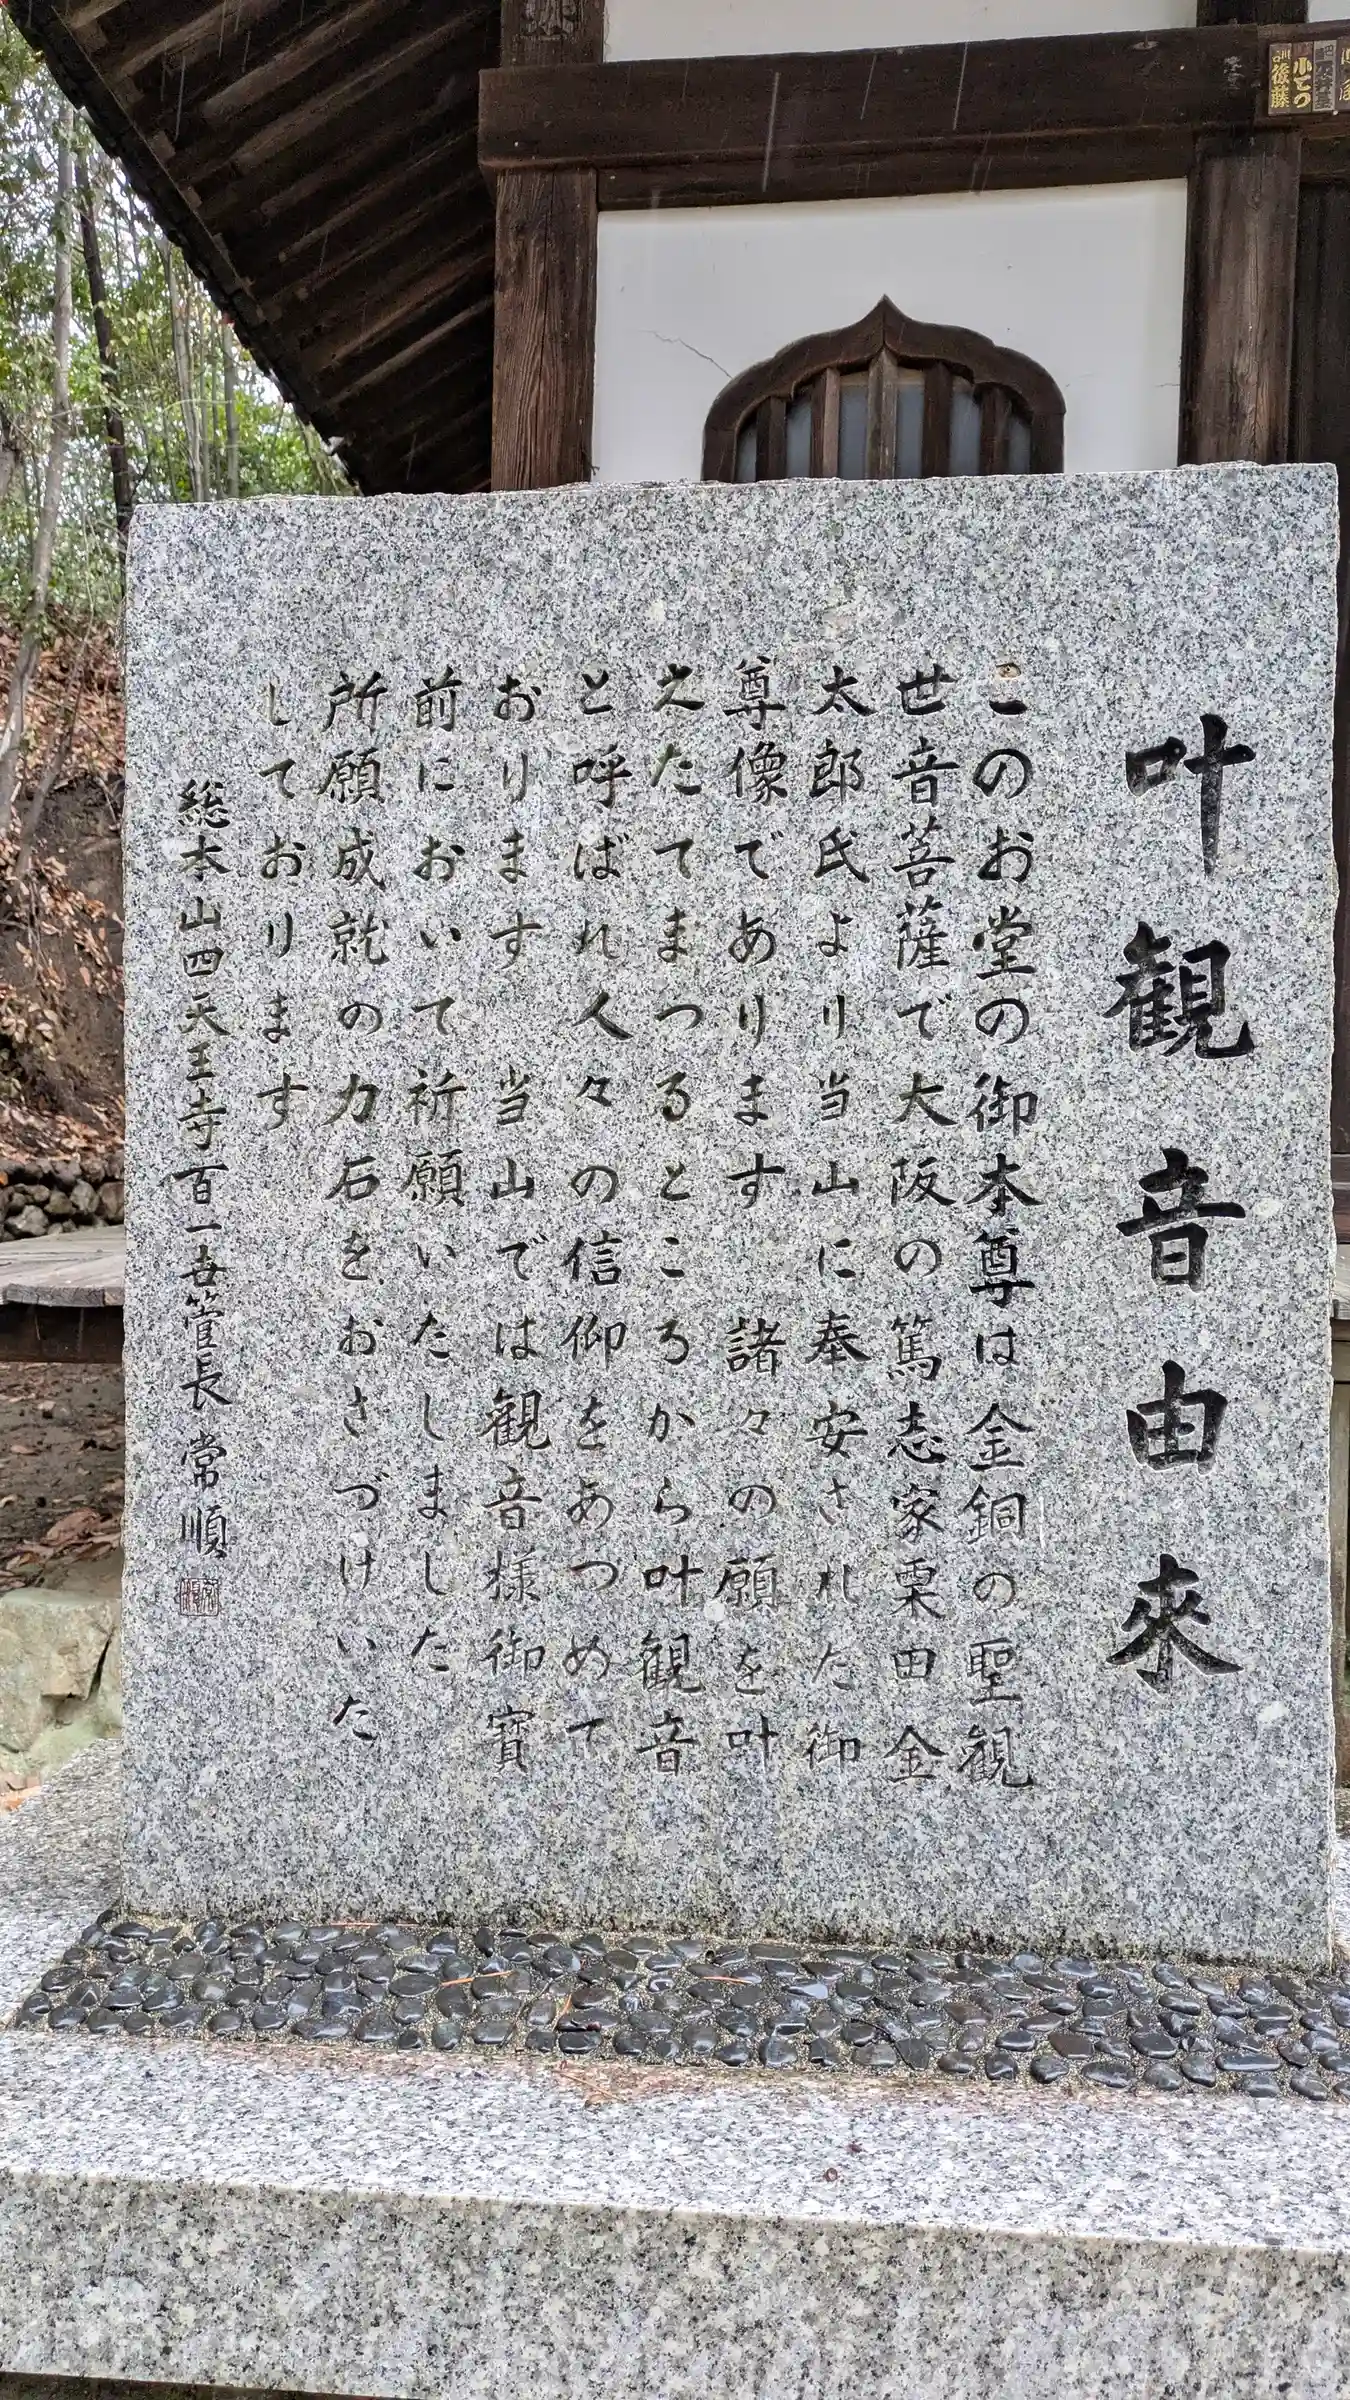 叶観音由来
このお堂の御本尊は金銅の聖観
世音菩薩で大阪の篤志家栗田金
太郎氏より当山に奉安された御
尊像であります 諸々の願を叶
えたてまつるところから叶観音
と呼ばれ人々の信仰をあつめて
おります 当山では観音様御寳
前において祈願いたしました
所願成就の力石をおさづけいた
しております
総本山四天王寺百一世管長 常順
小てつ
後藤